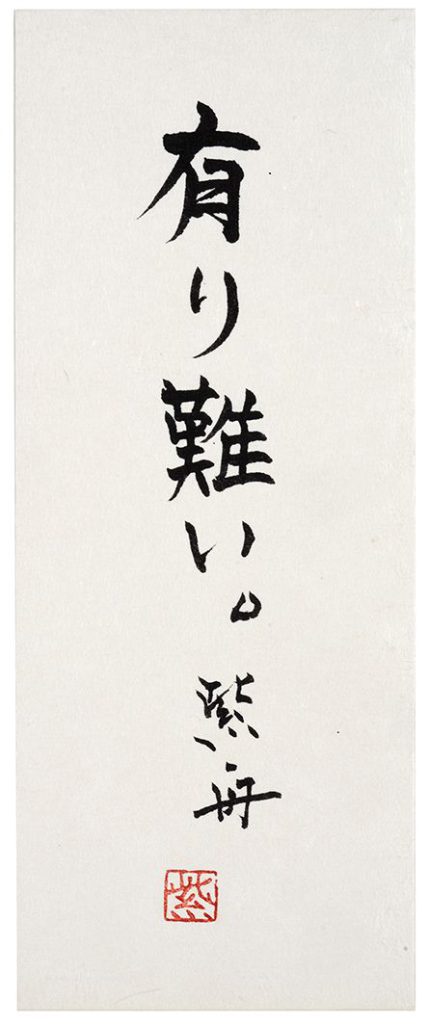 有り難い。
紫舟
紫